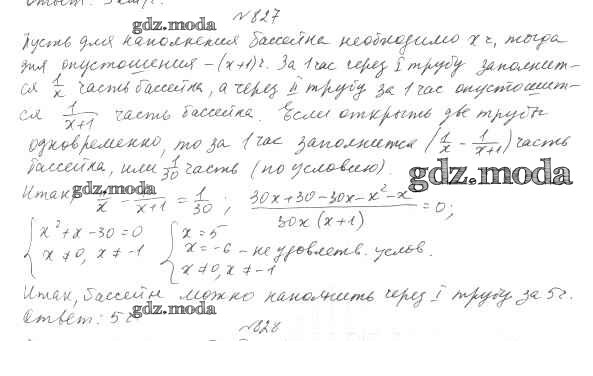 Ответ: 5 км/ч.
gdz.moda
№827
Пусть для наполнения бассейна необходимо x ч, тогда
для опустошения – (x+1)ч. За 1 час через I трубу заполнит-
ся 1/x часть бассейна, а через II трубу за 1 час опустошит-
ся 1/(x+1) часть бассейна. Если открыть две трубы
одновременно, то за 1 час заполнится (1/x - 1/(x+1)) часть
бассейна, или 1/30 часть (по условию).
gdz.moda
Итак, 1/x - 1/(x+1) = 1/30 ; (30x+30-30x-x²-x)/(30x(x+1)) = 0;
gdz.moda
{ x²+x-30=0 { x=5
x≠0, x≠-1 x=-6 – не удовлетв. услов.
x≠0, x≠-1
Итак, бассейн можно наполнить через I трубу за 5ч.
Ответ: 5ч
gdz.moda
№828